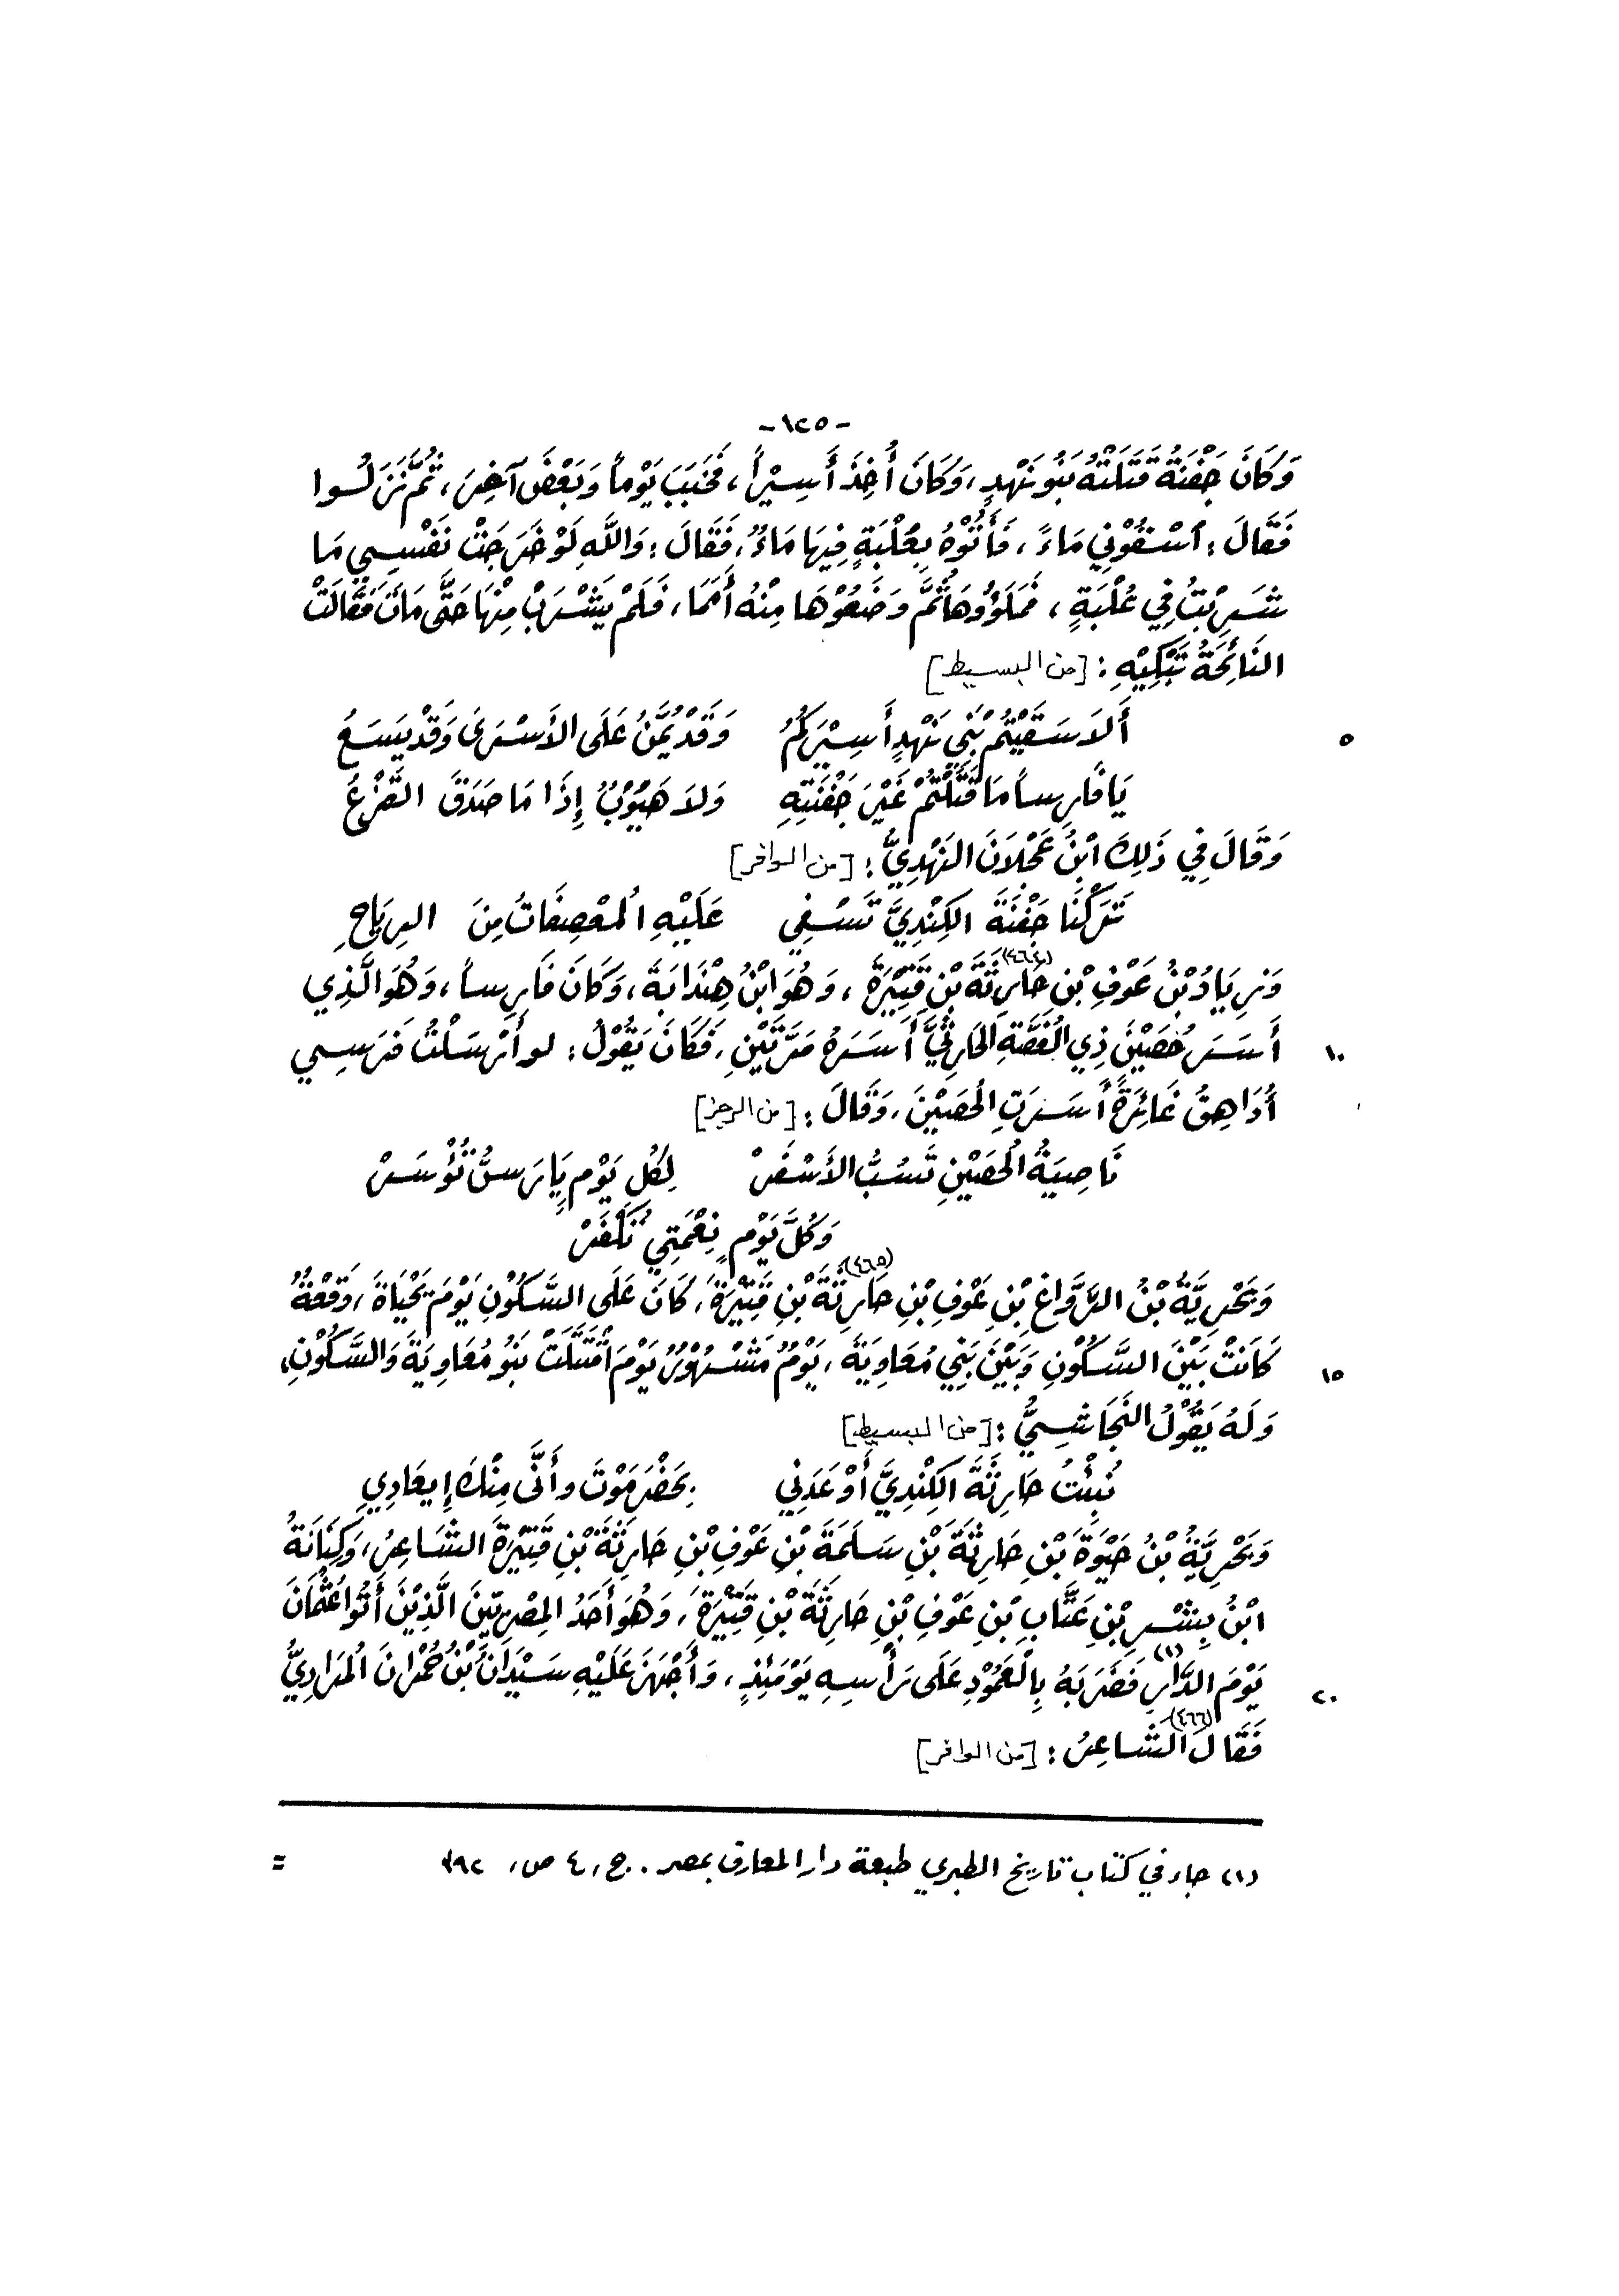 -١٢٥-
وَكَانَ جَفْنَةُ قَتَلَتْهُ بَنُو نَهْدٍ، وَكَانَ أُخِذَ أَسِيْراً، فَخَبَبَ يَوْماً وَبَعْضَ آخِرَ، ثُمَّ نَزَلُوا
فَقَالَ: اُسْقُوْنِي مَاءً، فَأَتُوْهُ بِعُلْبَةٍ فِيهَا مَاءٌ، فَقَالَ: وَاللَّهِ لَوْ خَرَجَتْ نَفْسِي مَا
شَرِبْتُ فِي عُلْبَةٍ، فَمَلَؤُوهَا ثُمَّ وَضَعُوْهَا مِنْهُ أَمَمَا، فَلَمْ يَشْرَبْ مِنْهَا حَتَّى مَاتَ فَقَالَتْ
النَائِحَةُ تَبْكِيْهِ: [من البسيط]
أَلاَ سَقَيْتُمْ بَنِي نَهْدٍ أَسِيْرَكُمُ وَقَدْ يُمَنُّ عَلَى الأَسْرَى وَقَدْ يَسَعُ ٥
يَا فَارِساً مَا قَتَلْتُمْ غَيْرَ جَفْنَتِهِ وَلاَ هَيُوْبٌ إِذَا مَا صَدَقَ القَزْعُ
وَقَالَ فِي ذَلِكَ ابْنُ عَجْلاَنَ النَهْدِيُّ: [من الوافر]
تَرَكْنَا جَفْنَةَ الكِنْدِيَّ تَسْفِي عَلَيْهِ المُعْصِفَاتُ مِنَ الرِيَاحِ
وَزِيَادُ بْنُ عَوْفِ بْنِ حَارِثَةَ(٤٦٤) بْنِ قَتِيْرَةَ، وَهُوَ ابْنُ هِنْدَابَةَ، وَكَانَ فَارِساً، وَهُوَ الَّذِي
أَسَرَ حُصَيْنَ ذِي الغُصَّةِ الحَارِثِيَّ أَسَرَهُ مَرَّتَيْنِ، فَكَانَ يَقُوْلُ: لو أَرْسَلْتُ فَرَسِي ١٠
أُدَاهِقُ غَائِرَةً أَسَرَتِ الحُصَيْنَ، وَقَالَ: [من الرجز]
نَاصِيَةُ الحُصَيْنِ تَسُبُّ الأَشْقَرْ لِكُلِ يَوْمٍ يَا رَسُّ تُؤْسَرْ
وَكُلَّ يَوْمٍ نِعْمَتِي تُكْفَرْ
وَبَحْرِيَّةُ بْنُ الرَّوَّاغِ بْنِ عَوْفِ بْنِ حَارِثَةَ(٤٦٥) بْنِ قَتِيْرَةَ، كَانَ عَلَى السَّكُوْنِ يَوْمَ مَحْيَاةَ، وَقْعَةٌ
كَانَتْ بَيْنَ السَّكُوْنِ وَبَيْنَ بَنِي مُعَاوِيَةَ، يَوْمٌ مَشْهُوْرٌ يَوْمَ اقْتَتَلَتْ بَنُو مُعَاوِيَةَ وَالسَّكُوْنِ، ١٥
وَلَهُ يَقُوْلُ النَجَاشِيُّ: [من البسيط]
نُبِئْتُ حَارِثَةَ الكِنْدِيَّ أَوْعَدَنِي بِحَضْرَمَوْتَ وأَنَّى مِنْكَ إِيعَادِي
وَبَحْرِيَّةُ بْنُ حَيْوَةَ بْنِ حَارِثَةَ بْنِ سَلَمَةَ بْنِ عَوْفِ بْنِ حَارِثَةَ بْنِ قَتِيْرَةَ الشَاعِرُ، وَكِنَانَةُ
ابْنُ بِشْرِ بْنِ عَتَّابِ بْنِ عَوْفِ بْنِ حَارِثَةَ بْنِ قَتِيْرَةَ، وَهُوَ أَحَدُ المِصْرِيّينَ الَّذِيْنَ أَتُوا عُثْمَانَ
يَوْمَ الدَّارِ(١) فَضَرَبَهُ بِالْعَمُوْدِ عَلَى رَأْسِهِ يَوْمَئِذٍ، وَأَجْهَزَ عَلَيْهِ سَيْدَانُ بْنُ حُمْرَانَ المُرَادِيُّ ٢٠
فَقَالَ الشَاعِرُ(٤٦٦): [من الوافر]
(١) جاء في كتاب تاريخ الطبري طبعة دار المعارف بمصر. ج، ٤ ص، ٣٩٢ =